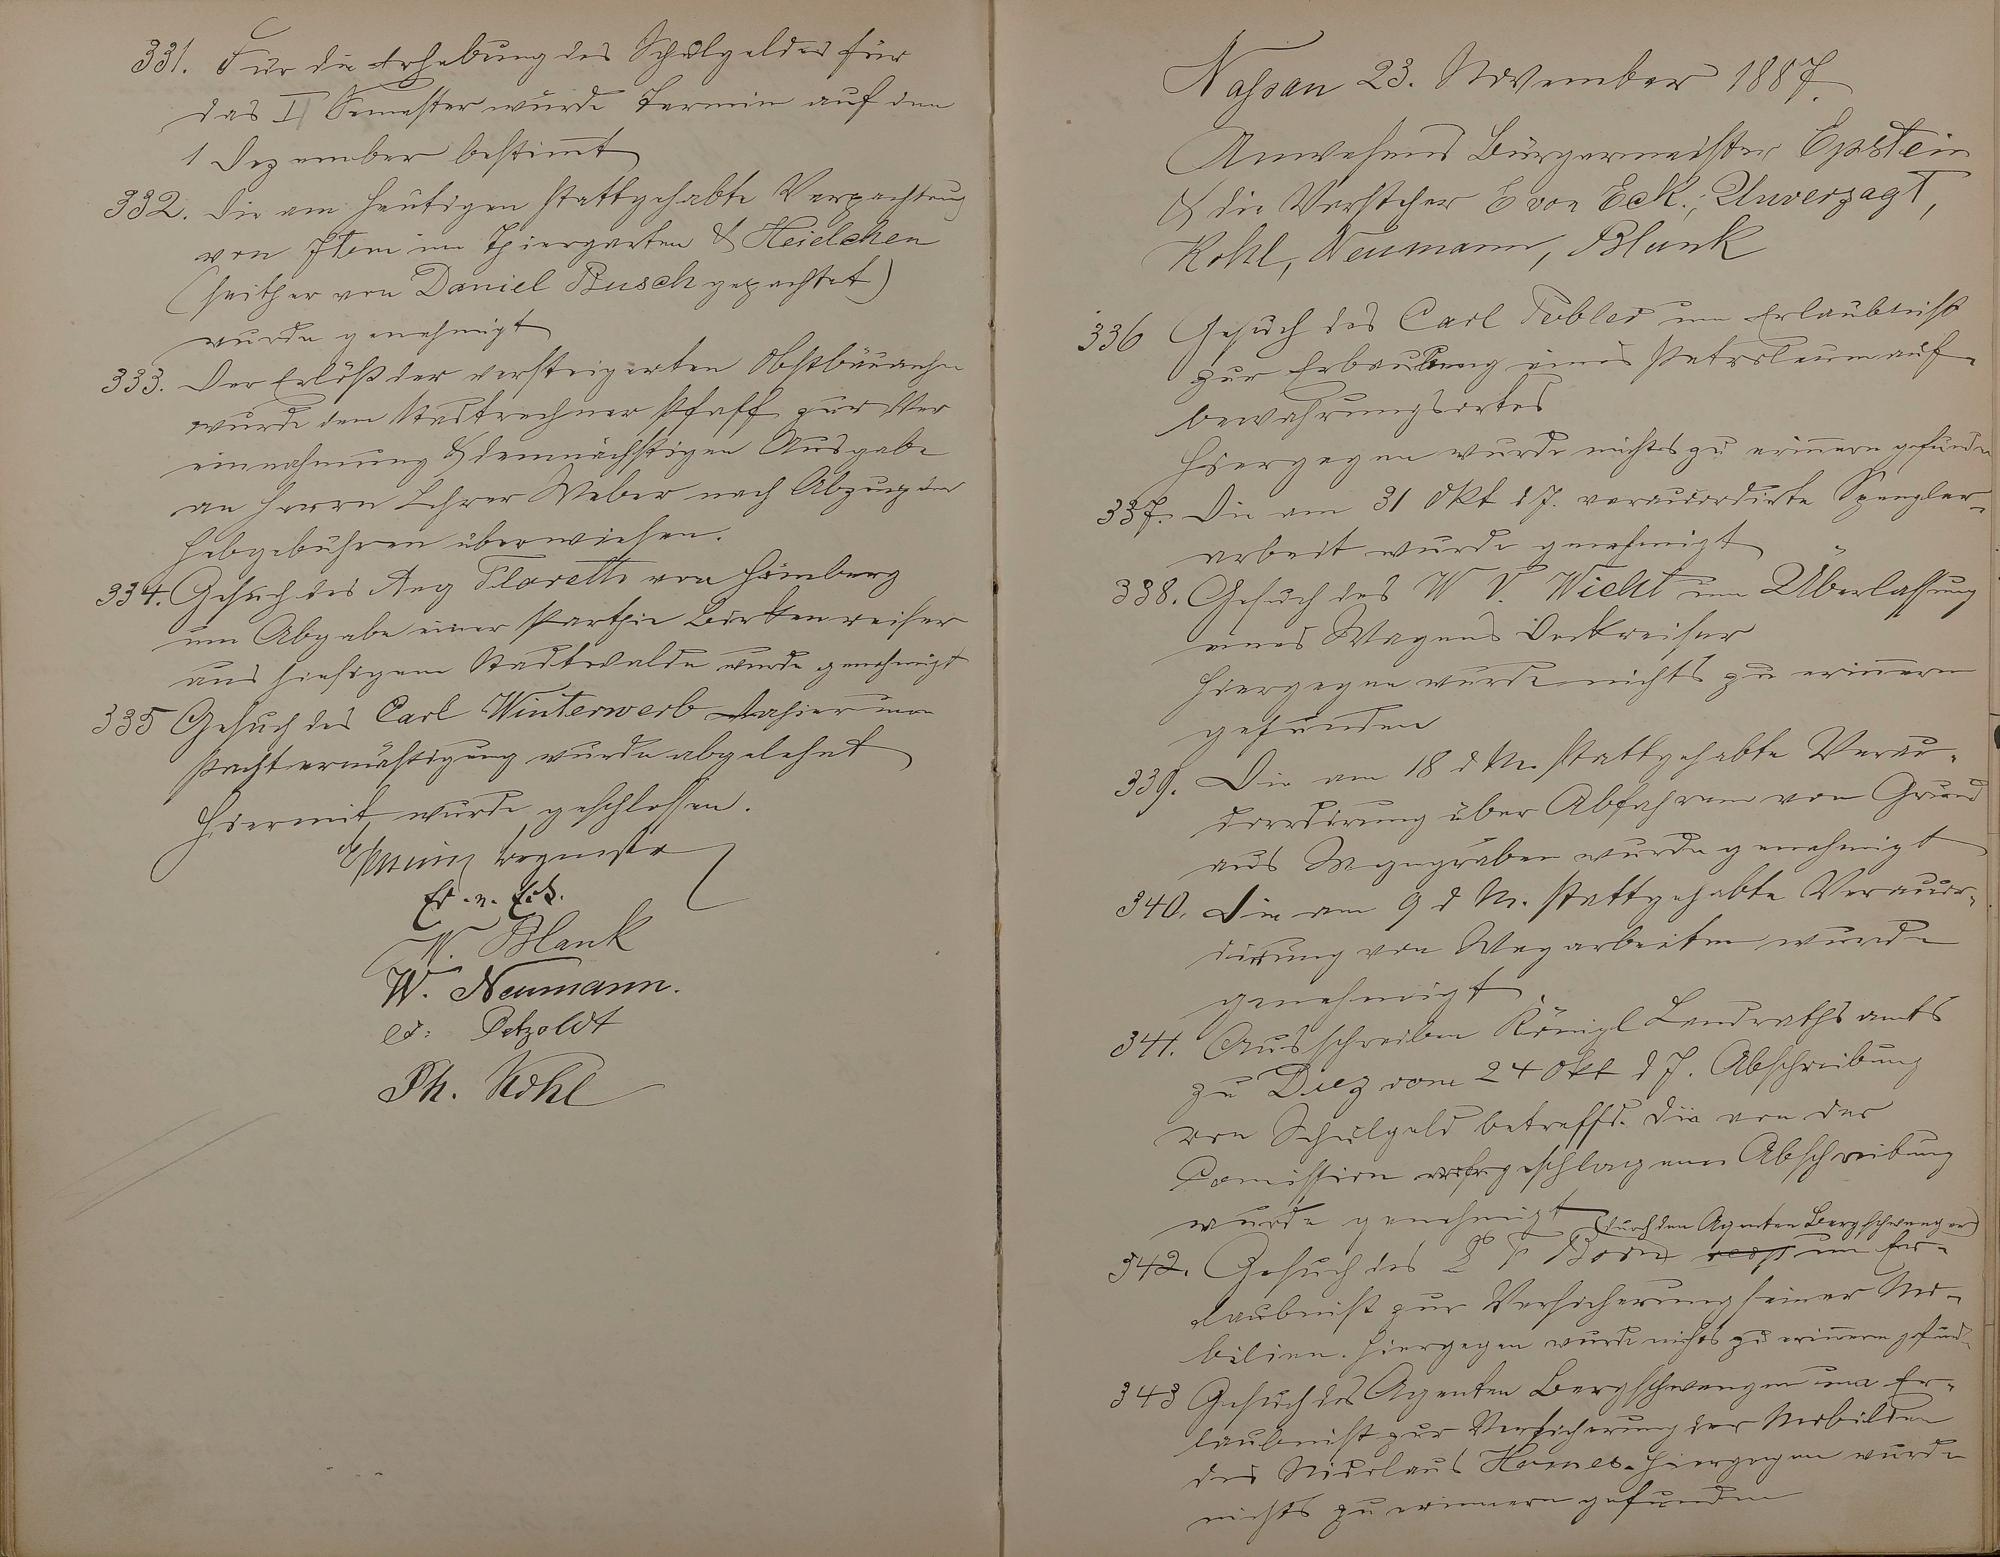 331. Für die Erhebung des Schulgeldes für
das II Semester wurde Termin auf den
1 Dezember bestimt
332. Die am heutigen stattgehabte Verpachtung
von Item im Thiergarten & Heidchen
(seither von Daniel Busch gepachtet)
wurde genehmigt
333. Der Erlöß der versteigerten Obstbäumchen
wurde dem Stadtrechner Pfaff zur Ver
einnahmung & demnächstigen Ausgabe
an Herrn Lehrer Weber nach Abzug der
Hebgebühren überwiesen.
334. Gesuch des Aug von Hömberg
um Abgabe einer Parthie Birkenreiser
aus hiesigem Stadtwalde wurde genehmigt
335 Gesuch des Carl Winterwerb dahier um
Pachtermäßigung wurde abgelehnt
Hiermit wurde geschlossen.
Epstein Bürgermstr
Ed. v. Eck.
W. Blank
W. Neumann.
ed: Petzoldt
Ph. Kohl
Nassau 23. November 1887.
Anwesend Bürgermeister Epstein
& die Vorsteher E von Eck., Unverzagt,
Kohl, Neumann, Blank
336 Gesuch des Carl Tobler um Erlaubniß
zur Erbauung eines Petroleumauf-
bewahrungsortes
Hiergegen wurde nichts zu erinnern gefunden
337. Die am 31 Okt d J. veraccordirte Spengler-
arbeit wurde genehmigt
338. Gesuch des W V. Wicht um Überlassung
eines Wagens Deckreiser
Hiergegen wurde nichts zu erinnern
gefunden
339. Die am 18 d M. stattgehabte Verac-
cordirung über Abfahren von Grund
aus Weggräben wurde genehmigt
340. Die am 9 d M. stattgehabte Veraccor-
dirung von Wegarbeiten wurde
genehmigt
341. Ausschreiben Königl Landrathsamts
zu Diez vom 24 Okt d J. Abschreibung
von Schulgeld betreffd. Die von der
Comission vorgeschlagenen Abschreibung
wurde genehmigt
(durch den Agenten Bergschwenger)
342. Gesuch des Born um Er-
laubniß zur Versicherung seiner Mo-
bilien. Hiergegen wurde nichts zu erinnern gefund.
343 Gesuch des Agenten Bergschwenger um Er-
laubniß zur Versicherung der Mobilien
des Nicolaus Hiergegen wurde
nichts zu erinnern gefunden